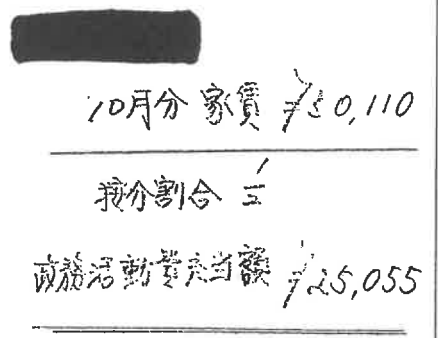 10月分 家賃 ¥50,110
按分割合 1/2
政務活動費充当額 ¥25,055